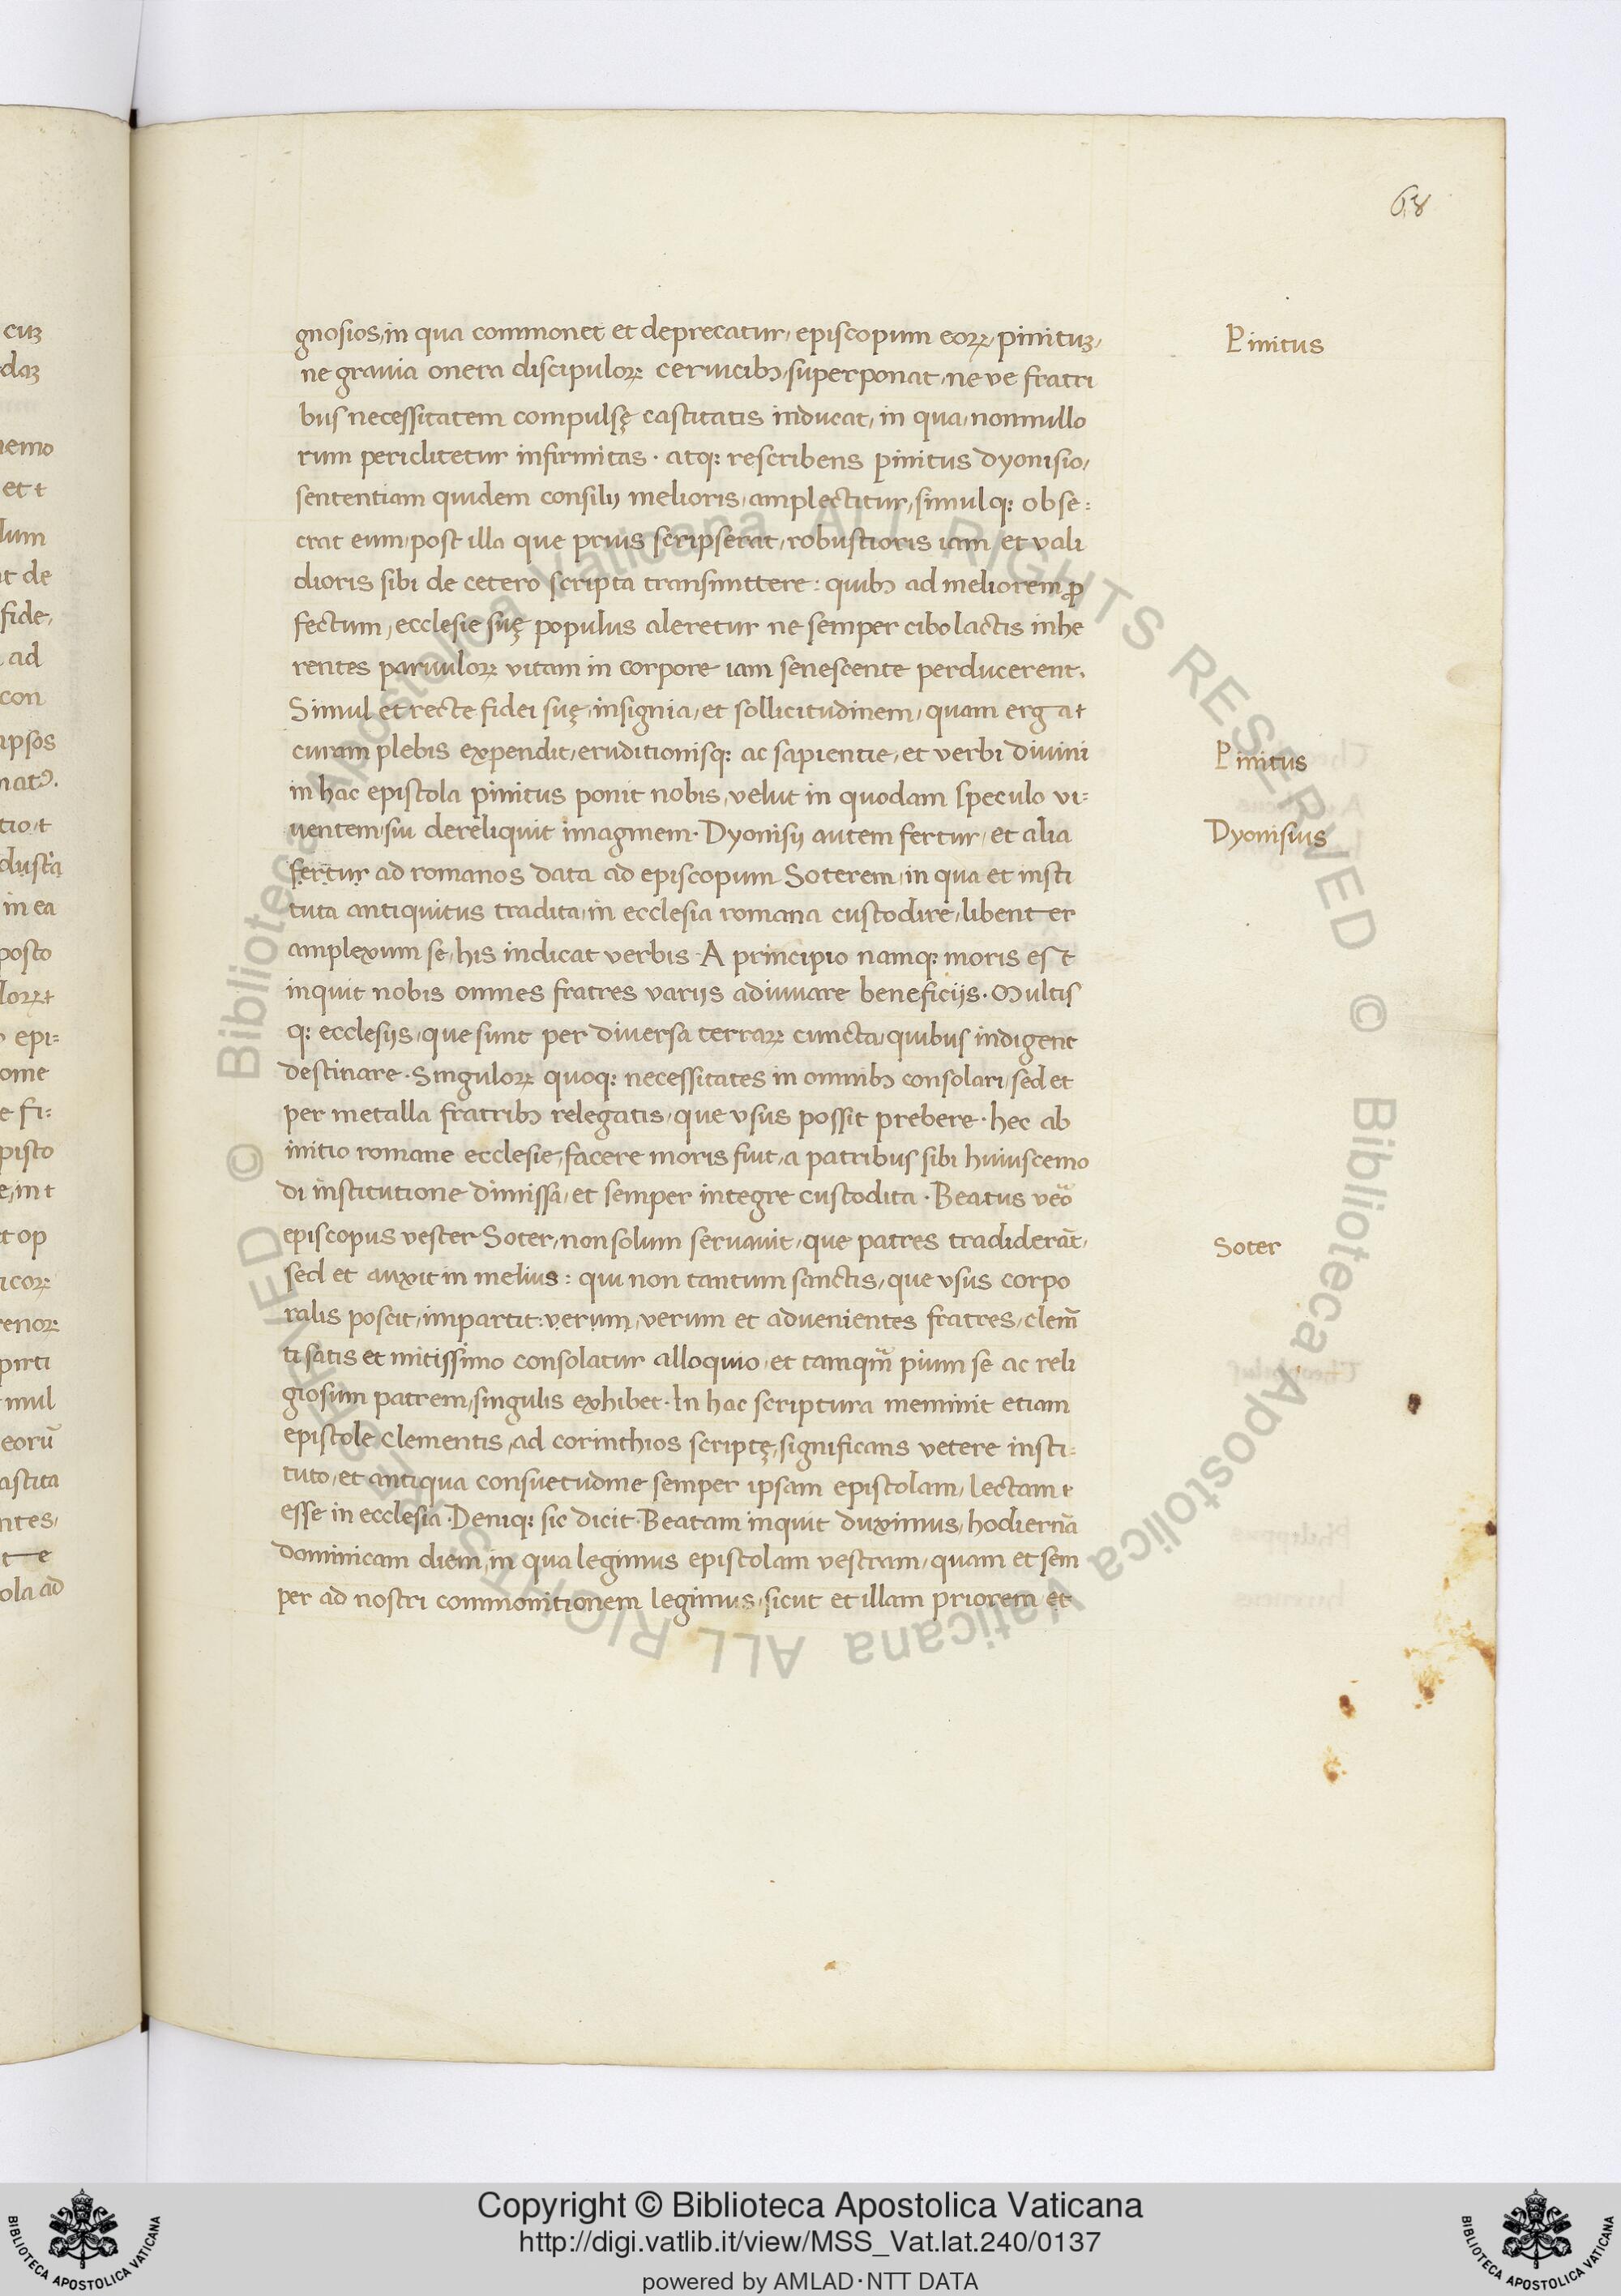 68
gnosios, in qua commonet et deprecatur, episcopum eoꝝ, pinituȝ,
Pinitus
ne gravia onera discipuloꝝ cervicibꝫ, superponat, ne ve fratri
bus necessitatem compulsę castitatis inducat, in qua, nonnullo
rum periclitetur infirmitas · atqꝫ rescribens pinitus dyonisio,
sententiam quidem consilij melioris, amplectitur, simulqꝫ obse:
crat eum, post illa que prius scripserat, robustioris iam et vali
dioris sibi de cetero scripta transmittere : quibꝫ ad meliorem ꝓ
fectum, ecclesie suę populus aleretur ne semper cibo lactis inhe
rentes parvuloꝝ vitam in corpore iam senescente perducerent.
Simul et recte fidei suę, insignia, et sollicitudinem, quam erga t
curam plebis expendit, eruditionisqꝫ ac sapientie, et verbi divini
Pinitus
in hac epistola pinitus ponit nobis, velut in quodam speculo vi:
uentem, sui dereliquit imaginem · Dyonisij autem fertur, et alia
Dyonisius
fertur ad romanos data ad episcopum Soterem, in qua et insti
tuta antiquitus tradita, in ecclesia romana custodire, libenter
amplexum se, his indicat verbis · A principio namqꝫ moris est
inquit nobis omnes fratres varijs adiuuare beneficijs · Multis
qꝫ ecclesijs, que sunt per diversa terraꝝ cuncta, quibus indigent
destinare · Singuloꝝ quoqꝫ necessitates in omnibꝫ consolari, sed et
per metalla fratribꝫ relegatis, que usus possit prebere · hec ab
initio romane ecclesie, facere moris fuit, a patribus sibi huiuscemo
di institutione dimissa, et semper integre custodita · Beatus veo᷒
episcopus vester Soter, non solum servavit, que patres tradiderāt,
Soter
sed et auxit in melius : qui non tantum sanctis, que usus corpo
ralis poscit, impartit : verum, verum et advenientes fratres, clem̄
ti satis et mitissimo consolatur alloquio, et tamqm̄ pium se ac reli
giosum patrem, singulis exhibet · In hac scriptura meminit etiam
epistole clementis, ad corinthios scriptę, significans vetere insti:
tuto, et antiqua consuetudine semper ipsam epistolam, lectam t
esse in ecclesia · Deniqꝫ sic dicit · Beatam inquit duximus, hodiernā
dominicam diem, in qua legimus epistolam vestram, quam et sem
per ad nostri commonitionem legimus, sicut et illam priorem et
© Biblioteca Apostolica Vaticana ALL RIGHTS RESERVED © Biblioteca Apostolica Vaticana ALL RIGHTS RESERVED
Copyright © Biblioteca Apostolica Vaticana
http://digi.vatlib.it/view/MSS_Vat.lat.240/0137
powered by AMLAD·NTT DATA
BIBLIOTECA APOSTOLICA VATICANA
BIBLIOTECA APOSTOLICA VATICANA